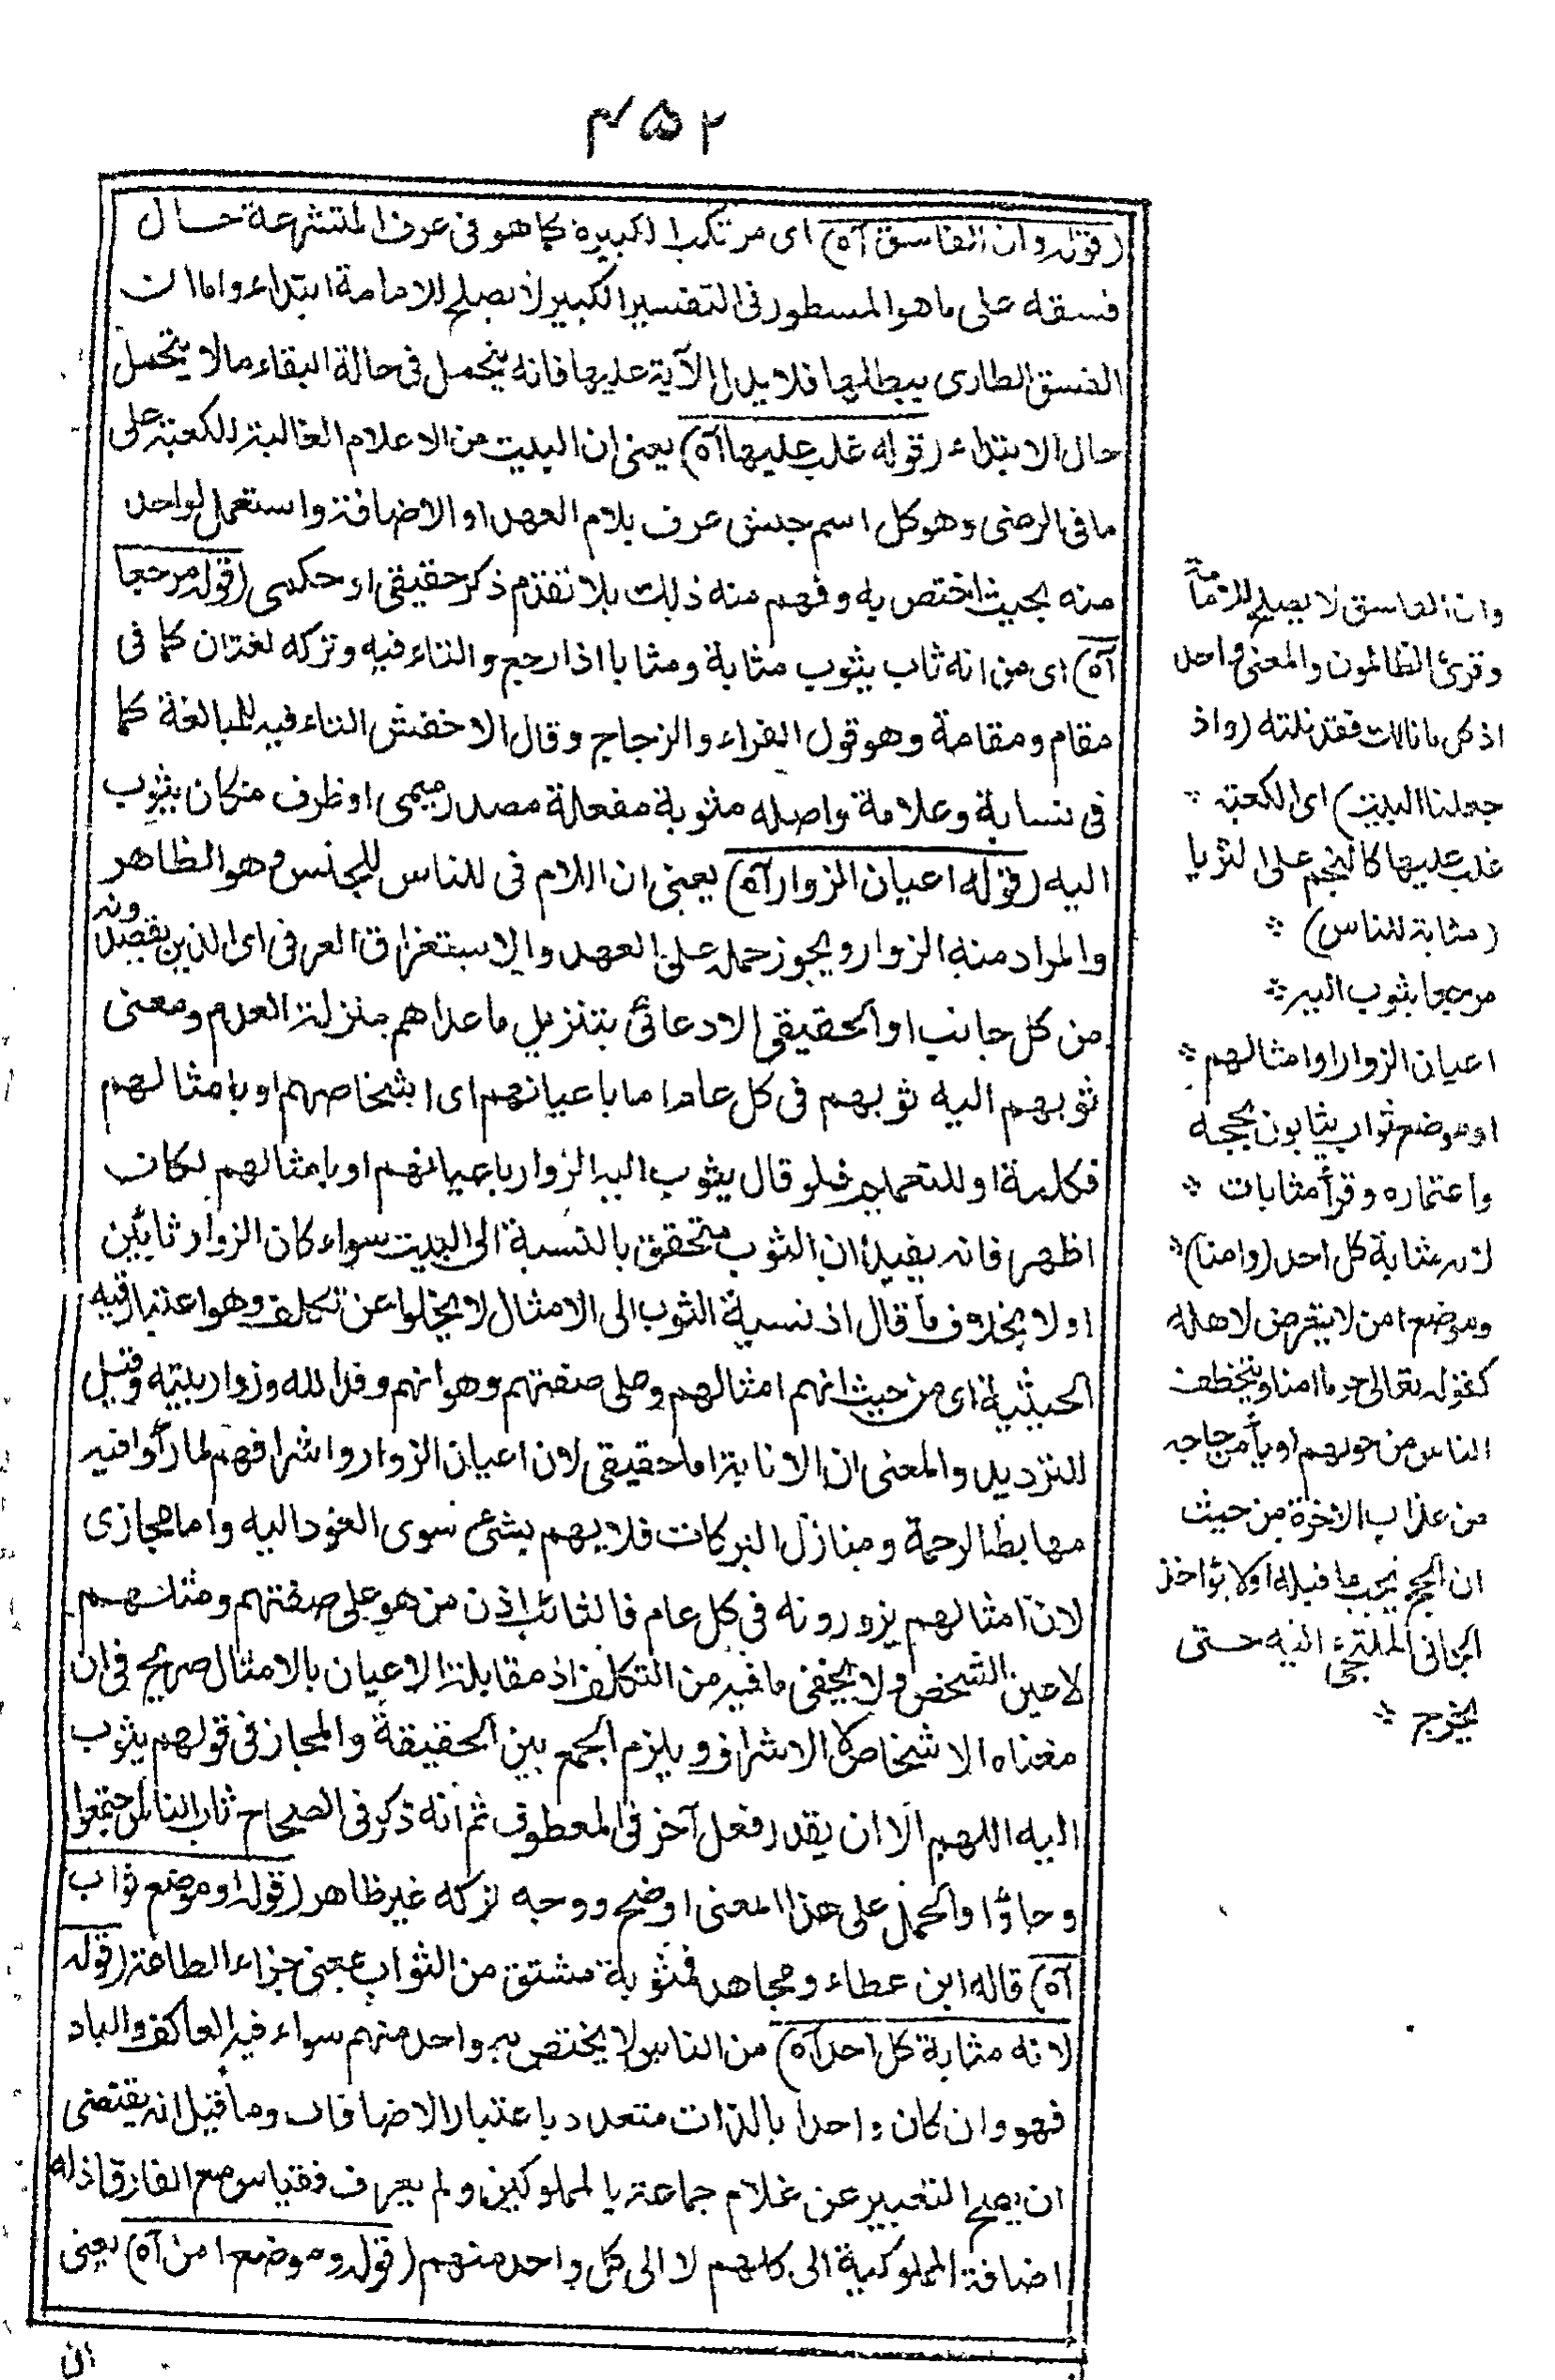 ۴۵۲
(قوله وان الفاسق آه) ای مرتكب الكبيرة كما هو فی عرف المتشرعة حال
فسقه علی ما هو المسطور فی التفسير الكبير لا يصلح للامامة ابتداء واما ان
الفسق الطاری يبطلها فلا يدل الآية عليها فانه يتحمل فی حالة البقاء ما لا يتحمل
حال الابتداء (قوله غلب عليها آه) يعنی ان البيت من الاعلام الغالبة للكعبة علی
ما فی الرضی وهو كل اسم جنس عرف بلام العهد او الاضافة واستعمل لواحد
منه بحيث اختص به وفهم منه ذلك بلا تقدم ذكر حقيقی او حكمی (قوله مرجعا
آه) ای من انه ثاب يثوب مثابة ومثابا اذا رجع والتاء فيه وتركه لغتان كما فی
مقام ومقامة وهو قول الفراء والزجاج وقال الاخفش التاء فيه للمبالغة كما
فی نسابة وعلامة واصله مثوبة مفعلة مصدر ميمی او ظرف مكان يثوب
اليه (قوله اعيان الزوار آه) يعنی ان اللام فی للناس للجنس وهو الظاهر
والمراد منه الزوار ويجوز حمله علی العهد والاستغراق العرفی ای الذين يقصدونه
من كل جانب او الحقيقی الادعائی بتنزيل ما عداهم منزلة العدم ومعنی
ثوبهم اليه ثوبهم فی كل عام اما باعيانهم ای اشخاصهم او بامثالهم
فكلمة او للتعميم فلو قال يثوب اليه الزوار باعيانهم او بامثالهم لكان
اظهر فانه يفيد ان الثوب متحقق بالنسبة الی البيت سواء كان الزوار ثائبين
اولا بخلاف ما قال اذ نسبة الثوب الی الامثال لا يخلوا عن تكلف وهو اعتبار قيد
الحيثية ای من حيث انهم امثالهم وعلی صفتهم وهو انهم وفد الله وزوار بيته وقيل
للترديد والمعنی ان الانابة اما حقيقی لان اعيان الزوار واشرافهم لما رأوا فيه
مهابط الرحمة ومنازل البركات فلا يهم بشیء سوی العود اليه واما مجازی
لان امثالهم يزورونه فی كل عام فالثائب اذن من هو علی صفتهم ومثلهم
لا عين الشخص ولا يخفی ما فيه من التكلف اذ مقابلة الاعيان بالامثال صريح فی ان
معناه الاشخاص لا الاشراف ويلزم الجمع بين الحقيقة والمجاز فی قولهم يثوب
اليه اللهم الا ان يقدر فعل آخر فی المعطوف ثم انه ذكر فی الصحاح ثاب الناس اجتمعوا
وجاؤا والحمل علی هذا المعنی اوضح ووجه تركه غير ظاهر (قوله او موضع ثواب
آه) قاله ابن عطاء ومجاهد فمثوبة مشتق من الثواب بمعنی جزاء الطاعة (قوله
لانه مثابة كل احد آه) من الناس لا يختص به واحد منهم سواء فيه العاكف والباد
فهو وان كان واحدا بالذات متعدد باعتبار الاضافات وما قيل انه يقتضی
ان يصح التعبير عن غلام جماعة بالمملوكين ولم يعرف فقياس مع الفارق اذ له
اضافة المملوكية الی كلهم لا الی كل واحد منهم (قوله وموضع امن آه) يعنی
ان
وان الفاسق لا يصلح للامامة
وقرئ الظالمون والمعنی واحد
اذ كل ما نالك فقد نلته (واذ
جعلنا البيت) ای الكعبة
غلب عليها كالنجم علی الثريا
(مثابة للناس)
مرجعا يثوب اليه
اعيان الزوار او امثالهم
او موضع ثواب يثابون بحجه
واعتماره وقرأ مثابات
لانه مثابة كل احد (وامنا)
وموضع امن لا يتعرض لاهله
كقوله تعالی حرما امنا ويتخطف
الناس من حولهم او يأمن حاجه
من عذاب الاخرة من حيث
ان الحج يجب ما قبله او لا يؤاخذ
الجانی الملتجئ اليه حتی
يخرج